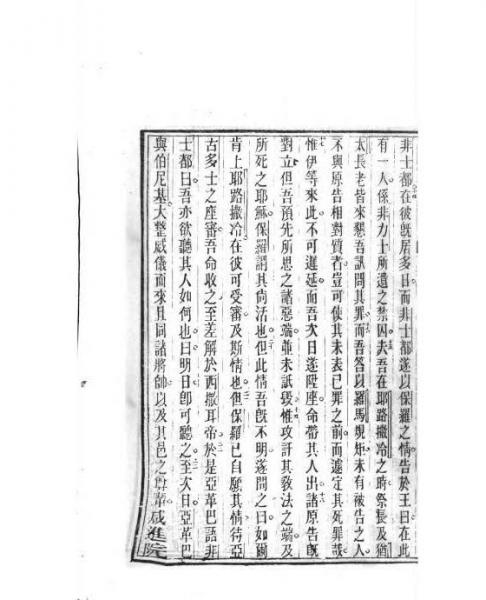 非士都在彼旣居多日而非士都遂以保羅之情告於王曰在此
有一人係非力士所遺之禁囚。夫吾在耶路撒冷之時祭長及猶
太長老皆來懇吾訊問其罪而吾答以羅馬規矩未有被告之人
不與原告相對質者豈可使其未表已罪之前而遽定其死罪哉
惟伊等來此。不可遲延而吾次日遂陞座。命帶其人出。諸原告旣
對立但吾預先所思之諸惡端並未詆毀惟攻訐其敎法之端及
所死之耶穌保羅謂其尙活也。但此情吾旣不明遂問之曰如爾
肯上耶路撒冷在彼可受審及斯情也。但保羅已自願其情待亞
古多士之座審吾命收之至差解於西撒耳帝。於是亞革巴語非
士都曰吾亦欲聽其人如何也。曰明日卽可聽之。至次日亞革巴
與伯尼基。大整威儀而來且同諸將帥。以及其邑之尊華咸進院